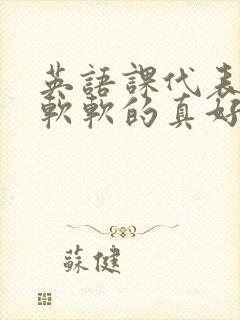 英語課代表
軟軟的真好
蘇健